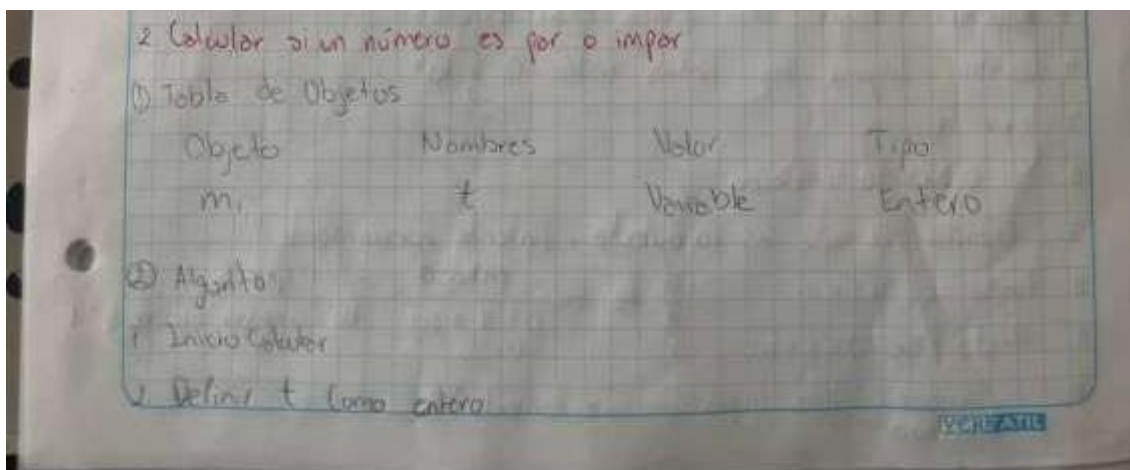 2 Calcular si un número es par o impar
① Tabla de Objetos
Objeto Nombres Valor Tipo
m₁ t Variable Entero
② Algorito
1 Inicio Calcular
2 Definir t Como entero